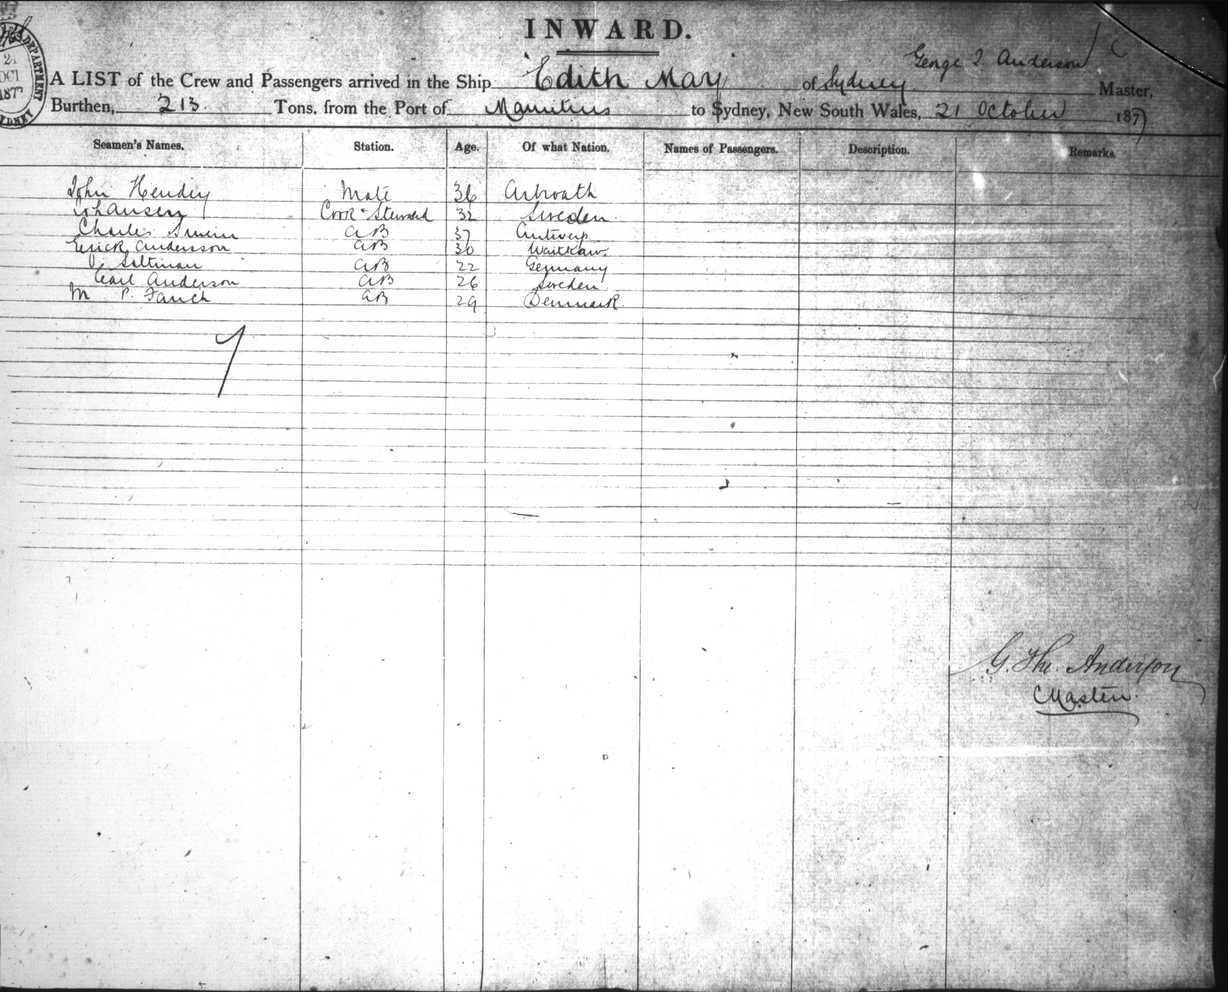 INWARD.
George Anderson
A LIST of the Crew and Passengers arrived in the Ship Edith May of Sydney Master,
Burthen, 213 Tons, from the Port of Mauritius to Sydney, New South Wales, 21 October 1877
Seamen's Names. Station. Age. Of what Nation. Names of Passengers. Description. Remarks
John Hendry Mate 36 Arbroath
Johansen Cook & Steward 32 Sweden
Charles AB 37 Antwerp
Erick Andersson AB 30
Siltman AB 22 Germany
Carl Anderson AB 26 Sweden
M P. Fanck AB 29 Denmark
7
G. Tho. Anderson
Master